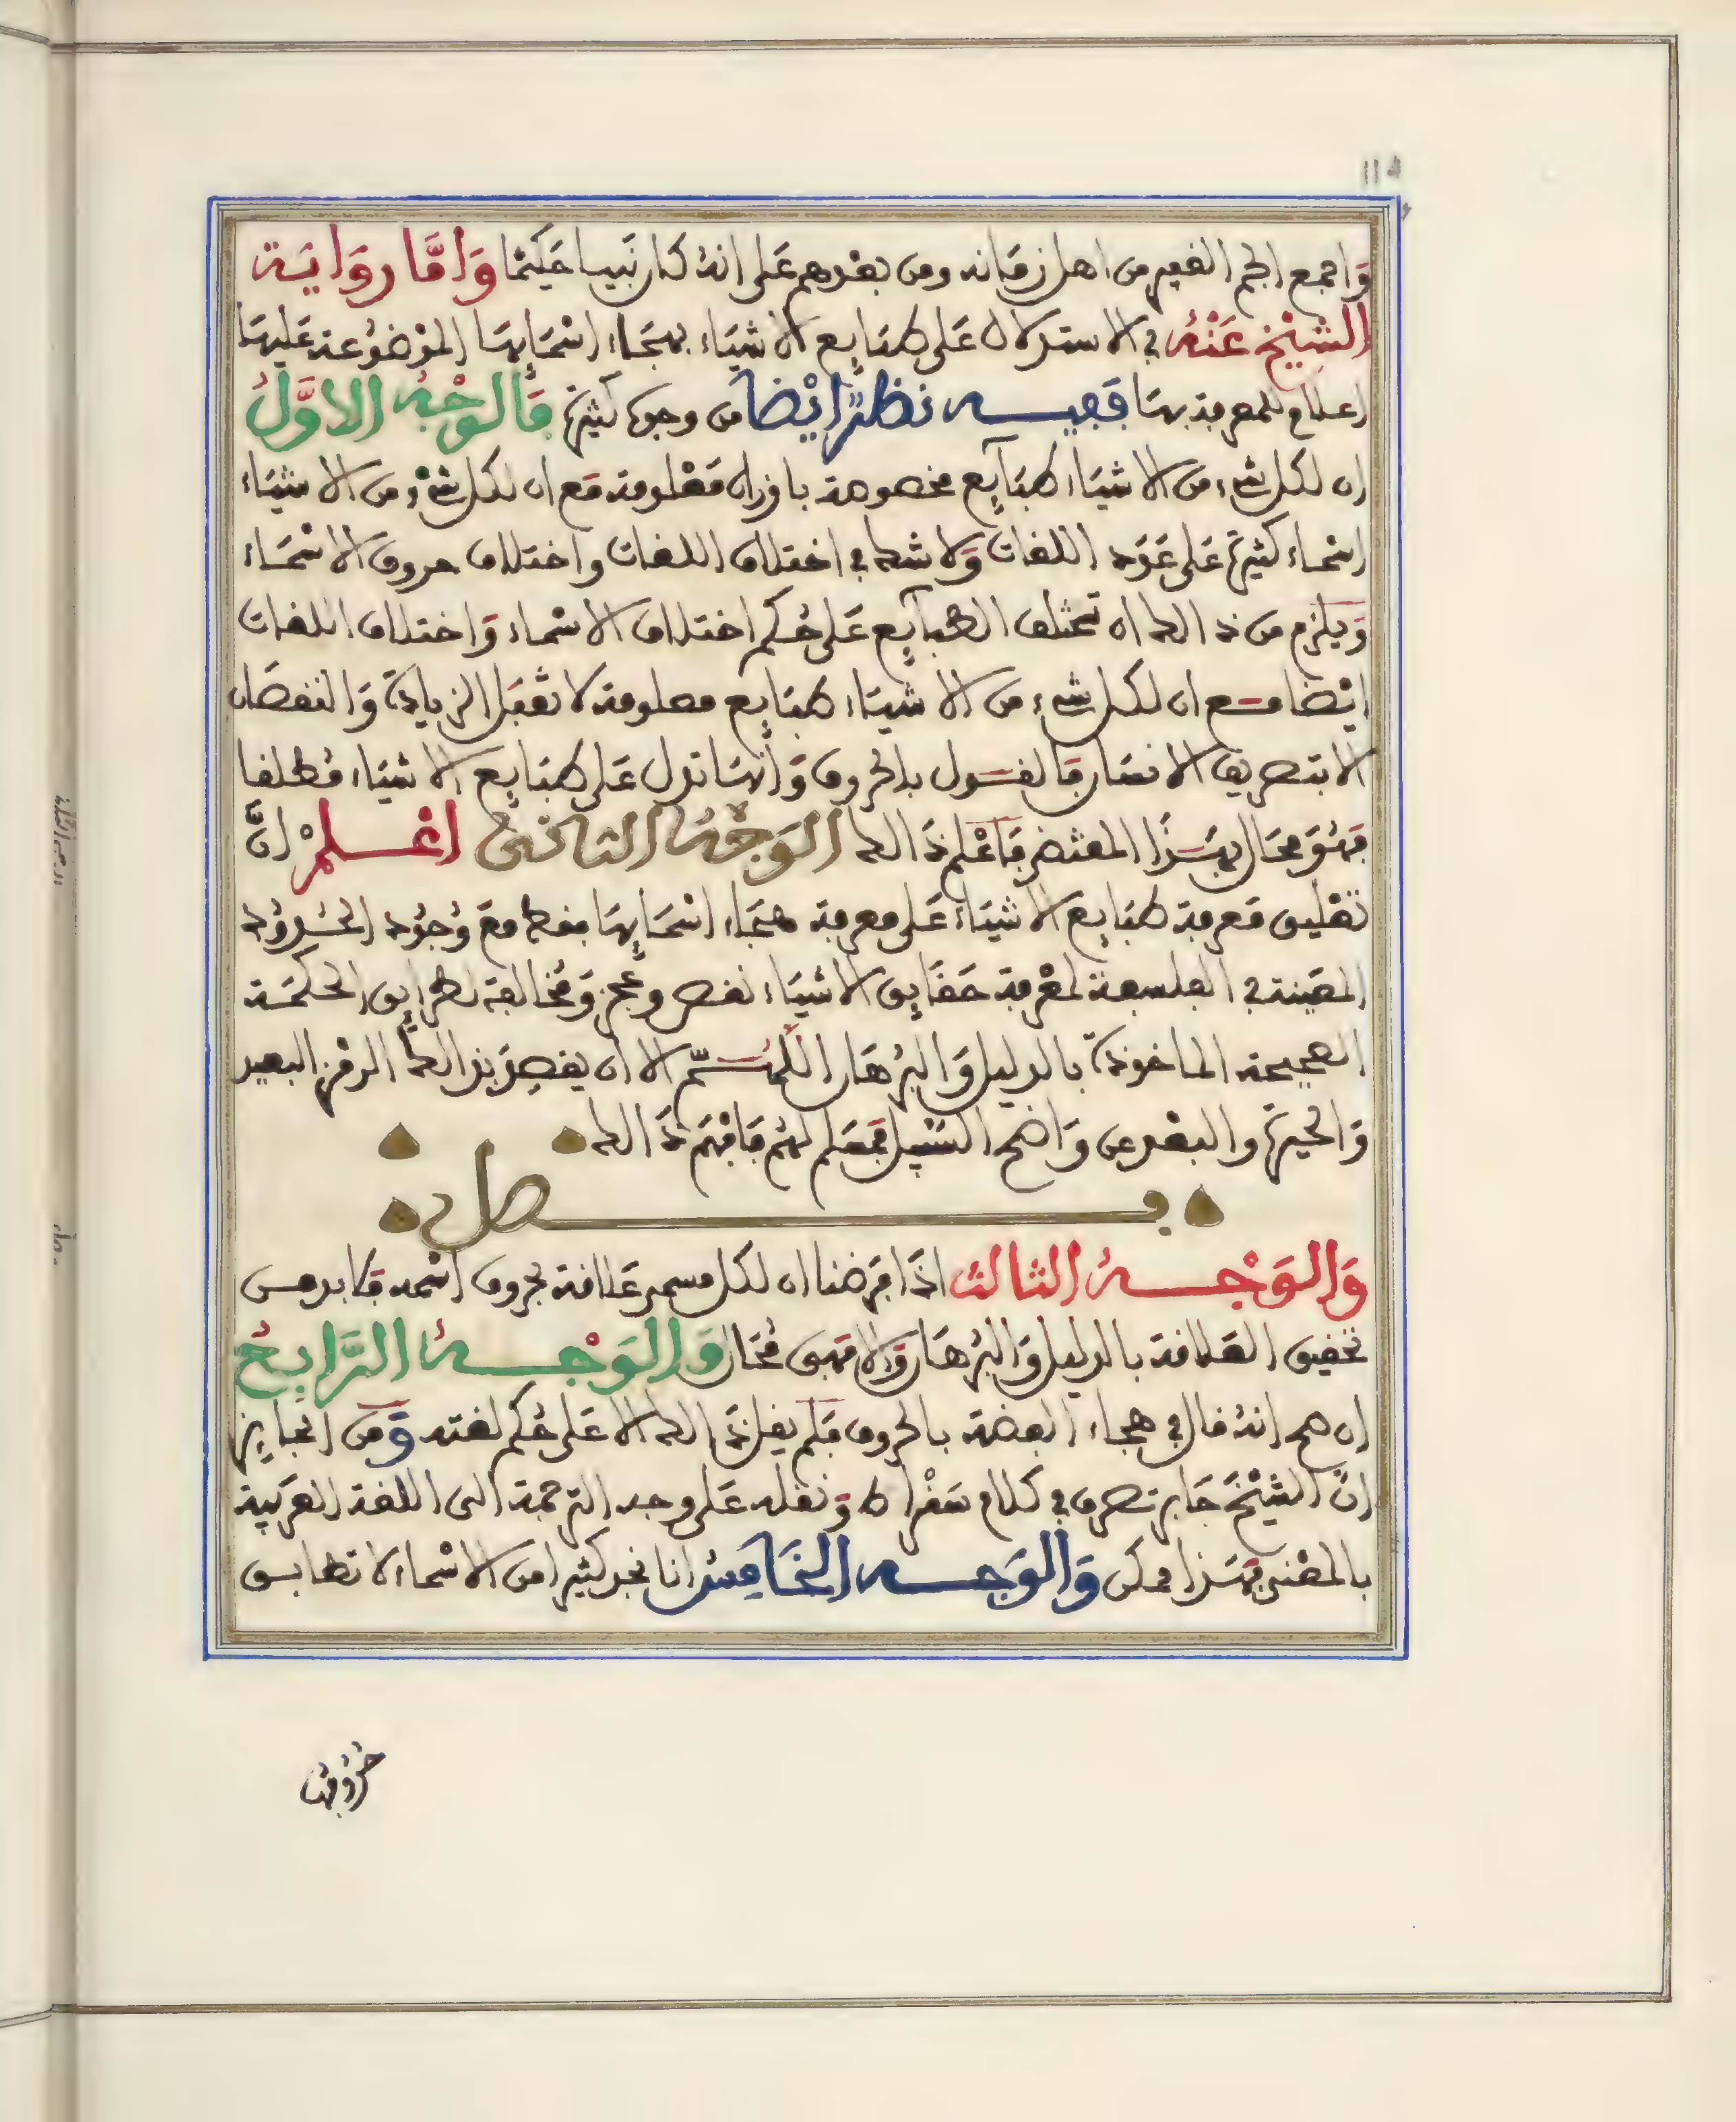 114
وَاجمع الجم الغفير من اهل زمَانه ومن بعْدهم عَلى انهُ كان نَبيا حَكيمْا وَامَّا روَايَة
الشيْخ عَنْهُ في الاستدلال عَلى طبَايِع الاشيَاء بهجَاء اسْمَايِهَا الموْضُوعة عَليهَا
اعلام للمعرفة بهَا فَفيه نظَرٌ ايْضا من وجوه كثيرة فَالوَجْهُ الاوَّلُ
ان لكل شيء من الاشيَاء طبَايِع مخصوصة باوزان مَعْلومة مَع ان لكل شيْء من الاشيَاء
اسْمَاء كثيرة عَلى عَدَد اللغات وَلا شك في اختلاف اللغات واختلاف حروف الاسْمَاء
وَيلزم من ذالك ان تختلف الطبَايِع عَلى حُكم اختلاف الاسْماء وَاختلاف اللغات
ايْضا مَع ان لكل شيء من الاشيَاء طبَايِع معلومة لا تقبَل الزيادة وَالنقصَان
الا بتصريف الانسَان فَالقَول بالحروف وَانهَا تدل عَلى طبَايِع الاشيَاء مُطلقا
فهُوَ محَال بهَذا المقتضى فَاعْلم ذَالك الوَجْهُ الثانيُ اعْلمْ انَّ
تعْليق مَعرفة طبَايِع الاشيَاء عَلى معرفة هجَاء اسْمَايِهَا فقط مع وُجُود الحُدُود
المعَينة في الفلسفة لمعْرفة حَقَايِق الاشيَاء نقص وعجز وَمُخالفة لطرَايِق الحكمَة
الصحيحة الماخوذة بالدليل وَالبُرهَان اللهُمَّ الا ان يقصِدَ بذالك الرمْز البعيد
وَالحيرة والبعْد عن وَاضح السَبيل فمُسَلم لهُم فَافهَم ذَالك
فصل
وَالوَجْهُ الثالث اذَا فَرضنا ان لكل مسمى عَلامة بحروف اسْمه فلا بد من
تحقيق العَلامة بالدليل وَالبُرهَان وَالا فهى مُحَال وَالوَجْهُ الرَّابِعُ
ان صح انهُ قال في هجاء الفضة بالحروف فلم يقل ذالك الا عَلى حُكم لغته وَمن الجايِز
انَّ الشيْخَ جَابر تصرف في كلام سُقْراط وَنقله عَلى وجه الترجمة الى اللغة العَرَبية
بالمعْنى فهَذا ممكن وَالوَجه الخَامِسُ انا نجد كثيرا من الاسْماء لا تطابق
حُرُوفهَا